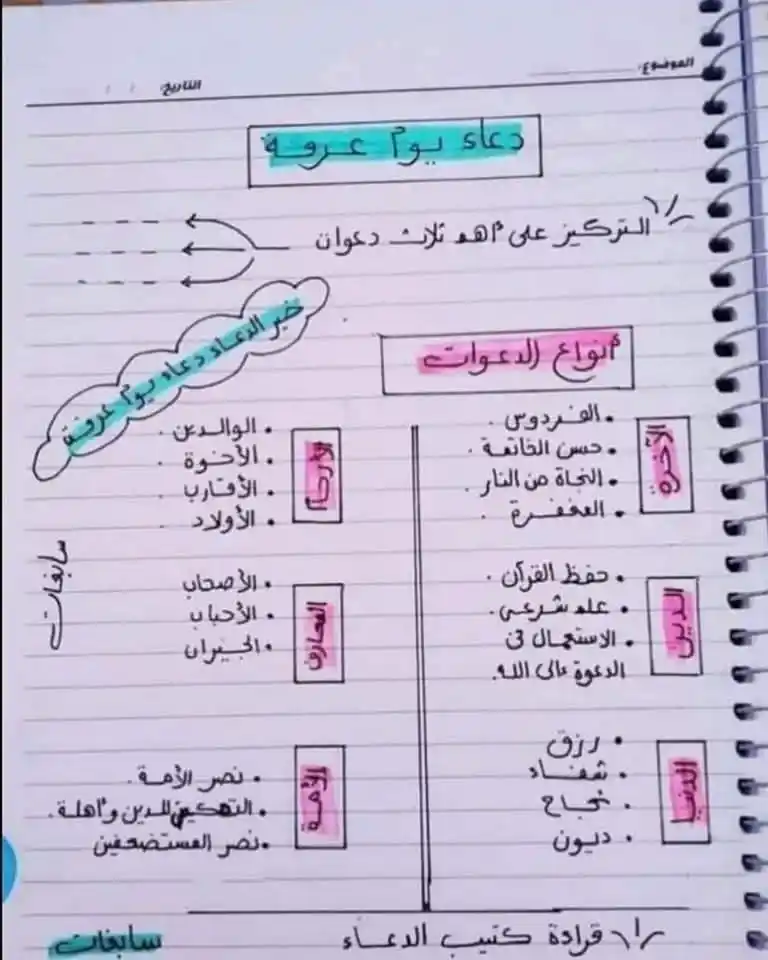 الموضوع:
التاريخ: / /
دعاء يوم عرفة
١/ التركيز على أهم ثلاث دعوات
خير الدعاء دعاء يوم عرفة
أنواع الدعوات
الآخرة
• الفردوس.
• حسن الخاتمة.
• النجاة من النار.
• المغفرة.
الدين
• حفظ القرآن.
• علم شرعي.
• الاستعمال في
الدعوة إلى الله.
الدنيا
• رزق
• شفاء
• نجاح
• ديون
الأرحام
• الوالدين.
• الأخوة.
• الأقارب.
• الأولاد.
المعارف
• الأصحاب
• الأحباب
• الجيران
الأمة
• نصر الأمة.
• التمكين للدين وأهلة.
• نصر المستضعفين
سابغات
١/ قرادة كتيب الدعاء
سابغات